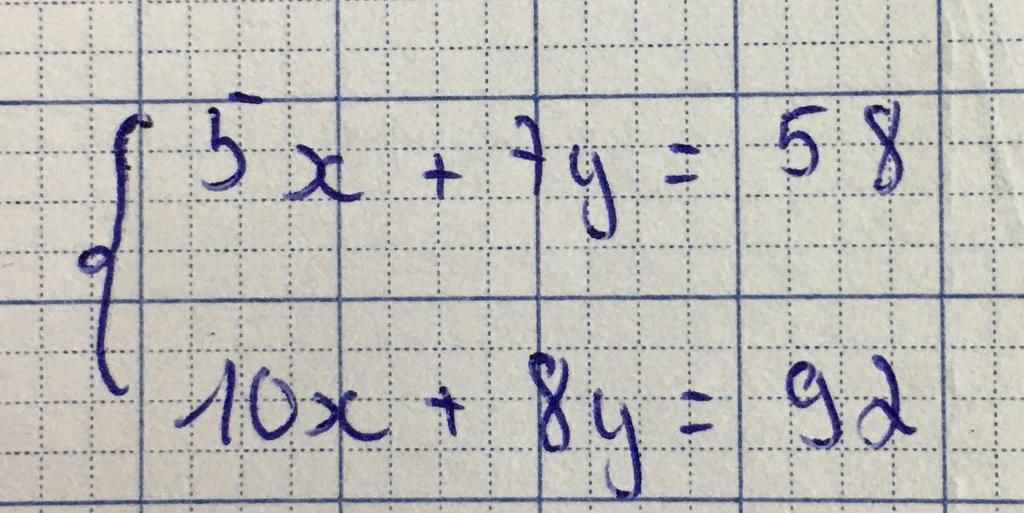 5x + 7y = 58
10x + 8y = 92